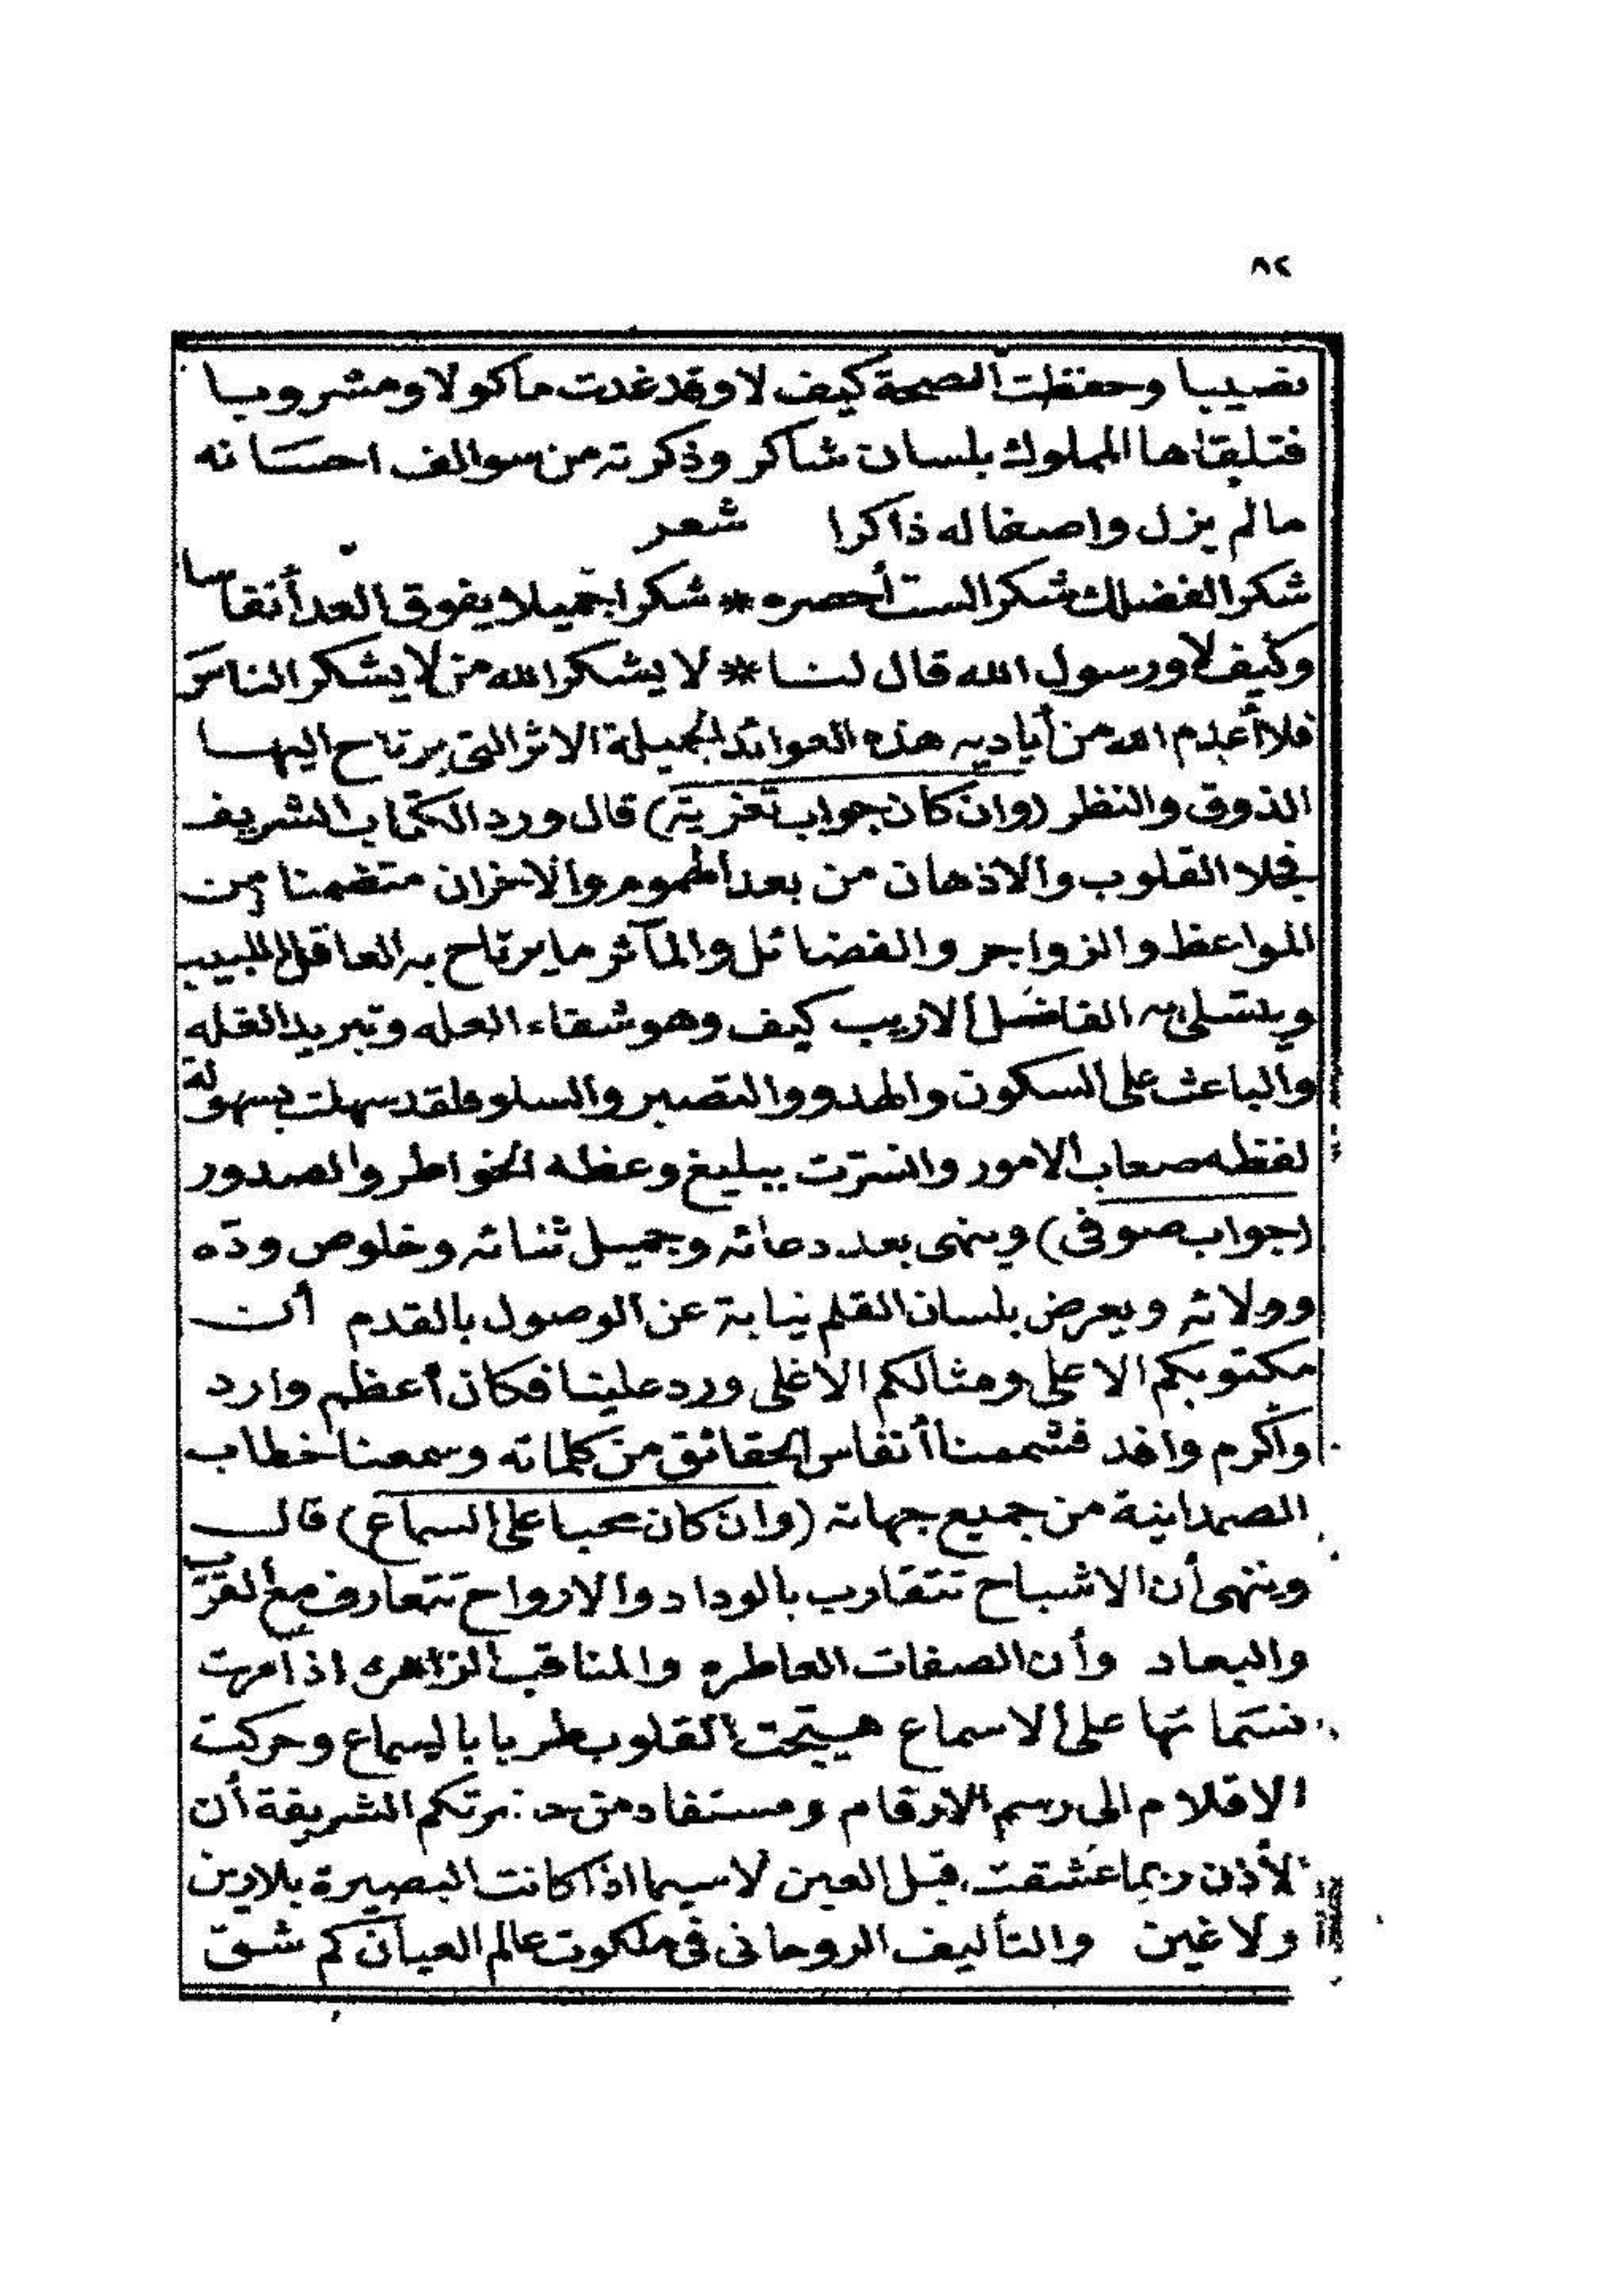 ٨٢
نصيبا وحفظت الصحة كيف لا وقد غدت ماكولا ومشروبا
فتلقاها المملوك بلسان شاكر وذكرته من سوالف احسانه
مالم يزل واصفا له ذاكرا شعر
شكرا لفضلك شكرا لست أحصره * شكرا جميلا يفوق العد أنفاسا
وكيف لا ورسول الله قال لنا * لا يشكر الله من لا يشكر الناسَ
فلا أعدم الله من أياديه هذه العوائد الجميلة الاثر التي يرتاح اليها
الذوق والنظر (وان كان جواب تعزية) قال ورد الكتاب الشريف
فجلا القلوب والاذهان من بعد الهموم والاحزان متضمنا من
المواعظ والزواجر والفضائل والمآثر ما يرتاح به العاقل اللبيب
ويتسلى به الفاضل الاريب كيف وهو شفاء العله وتبريد الغله
والباعث على السكون والهدو والتصبر والسلو فلقد سهلت بسهولة
لفظه صعاب الامور وانسرّت ببليغ وعظه الخواطر والصدور
(جواب صوفى) وينهى بعد دعائه وجميل ثنائه وخلوص ودّه
وولائه ويعرض بلسان القلم نيابة عن الوصول بالقدم أن
مكتوبكم الاعلى ومثالكم الاغلى ورد علينا فكان أعظم وارد
وأكرم وافد فشممنا أنفاس الحقائق من كلماته وسمعنا خطاب
الصمدانية من جميع جهاته (وان كان محبا على السماع) قال
وينهى أن الاشباح تتقارب بالوداد والارواح تتعارف مع القرب
والبعاد وأن الصفات العاطره والمناقب الزاهره اذا مرت
نسماتها على الاسماع هيّجت القلوب طربا بالسماع وحركت
الاقلام الى رسم الارقام ومستفاد من حضرتكم الشريفة أن
الأذن ربما عشقت قبل العين لاسيما اذا كانت البصيرة بلا رين
ولا غين والتأليف الروحانى فى ملكوت عالم العيان كم شق